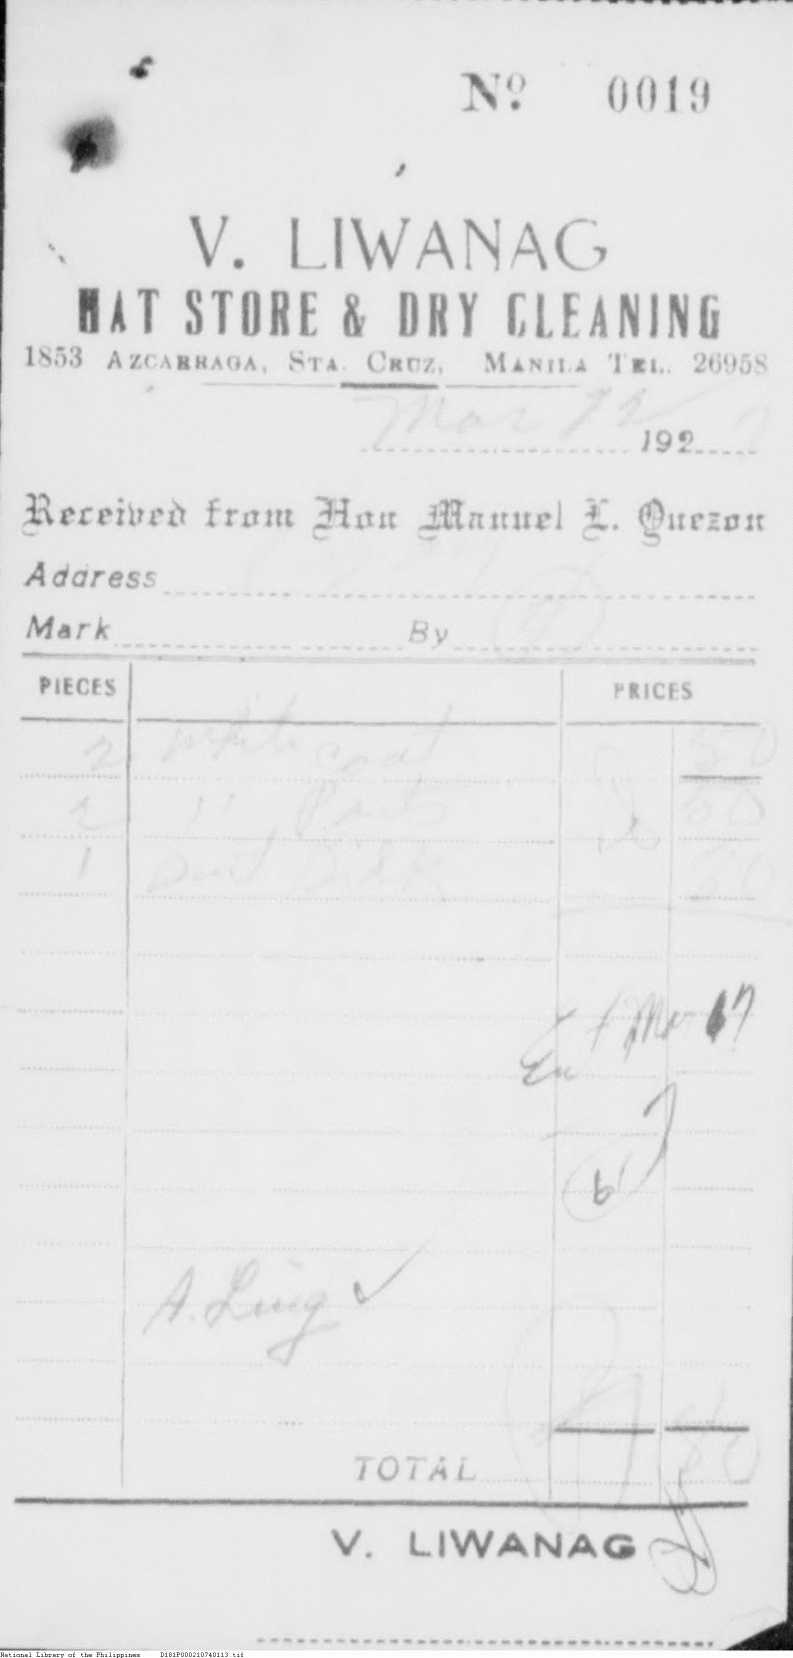 Nº 0019
V. LIWANAG
HAT STORE & DRY CLEANING
1853 AZCARRAGA, STA. CRUZ, MANILA TEL. 26958
Mar 12 192
Received from Hon Manuel L. Quezon
Address
Mark By
PIECES PRICES
2 White coat 50
2 " Pants 50
1 Suit
Mar 17
A. Ling ✓
TOTAL 80
V. LIWANAG
National Library of the Philippines D181P000210740113.tif